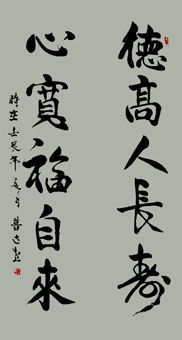 德高人長壽
心寬福自來
時在壬辰年